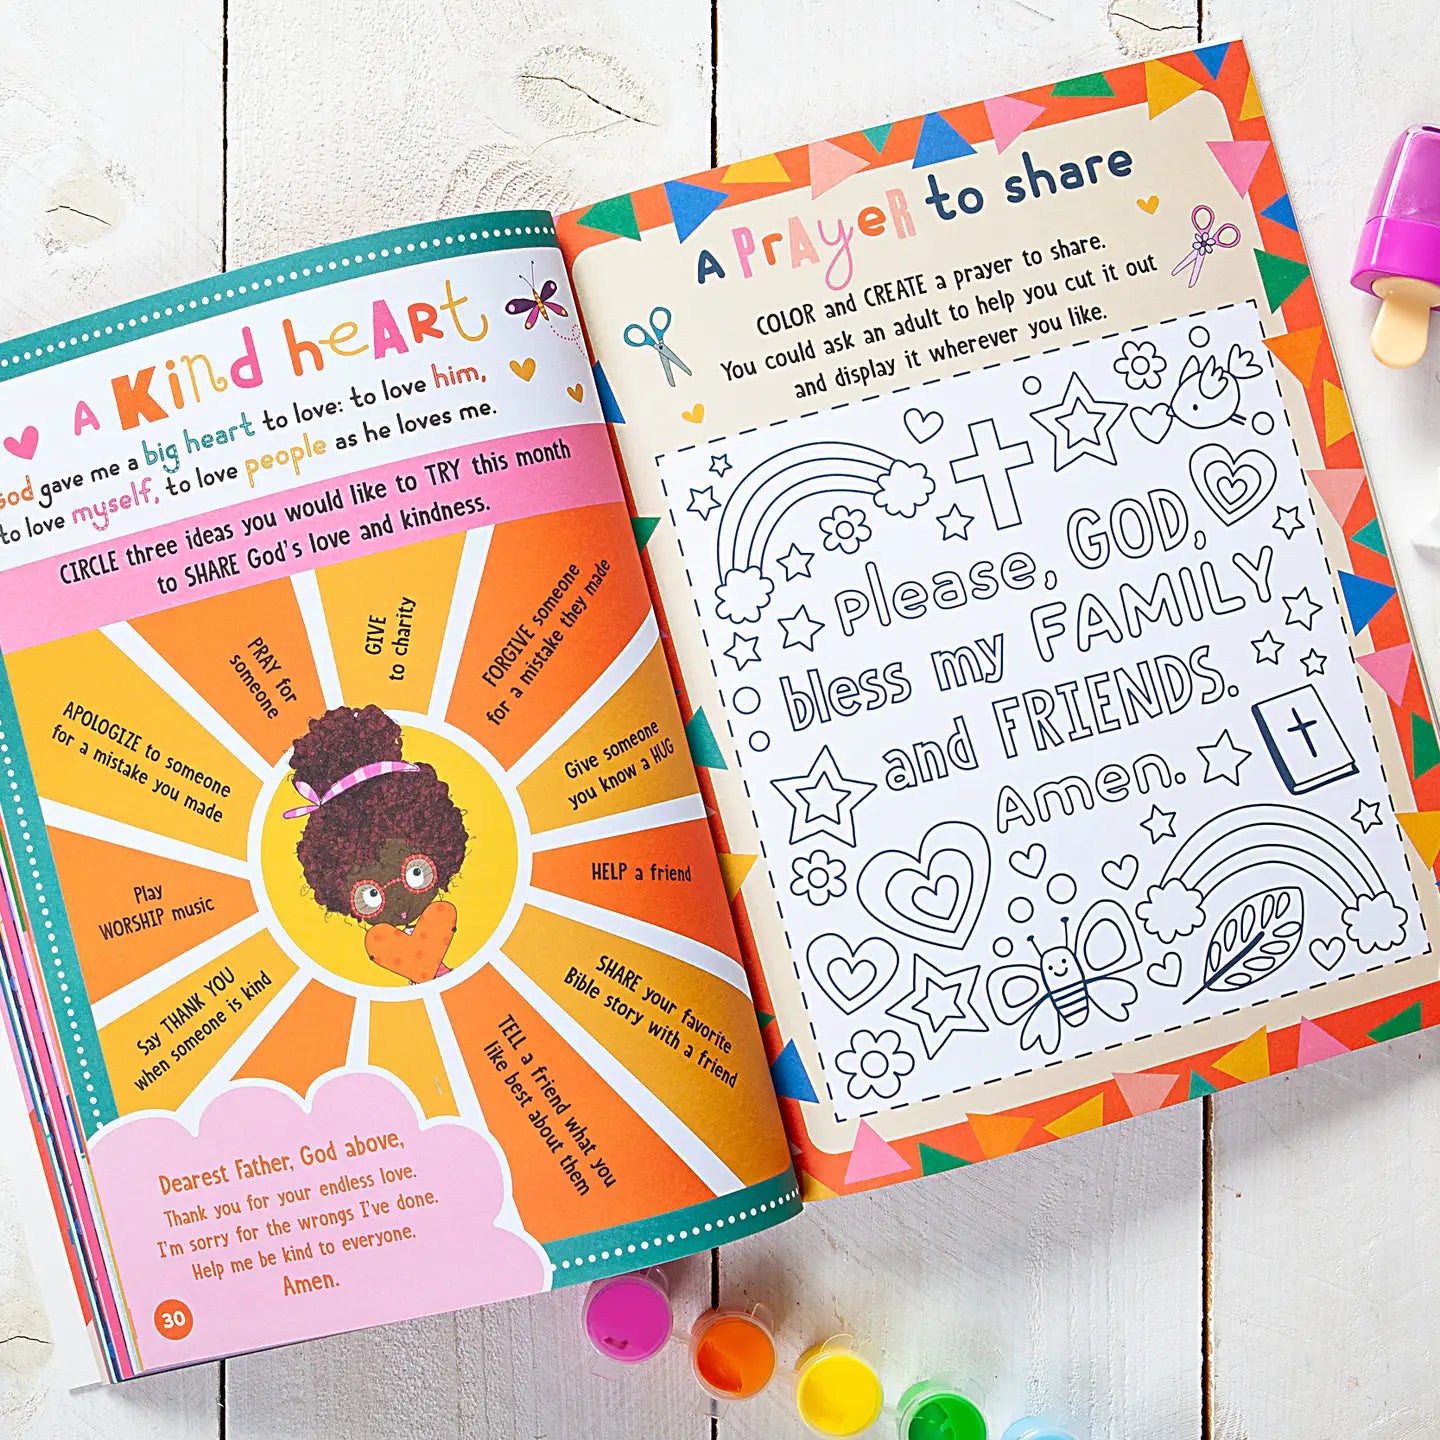 A KiNd heARt
God gave me a big heart to love: to love him,
to love myself, to love people as he loves me.
CIRCLE three ideas you would like to TRY this month
to SHARE God's love and kindness.
APOLOGIZE to someone
for a mistake you made
PRAY for
someone
GIVE
to charity
FORGIVE someone
for a mistake they made
Give someone
you know a HUG
HELP a friend
SHARE your favorite
Bible story with a friend
TELL a friend what you
like best about them
Say THANK YOU
when someone is kind
Play
WORSHIP music
Dearest Father, God above,
Thank you for your endless love.
I'm sorry for the wrongs I've done.
Help me be kind to everyone.
Amen.
30
A PrAyeR to share
COLOR and CREATE a prayer to share.
You could ask an adult to help you cut it out
and display it wherever you like.
Please, GOD,
bless my FAMILY
and FRIENDS.
Amen.